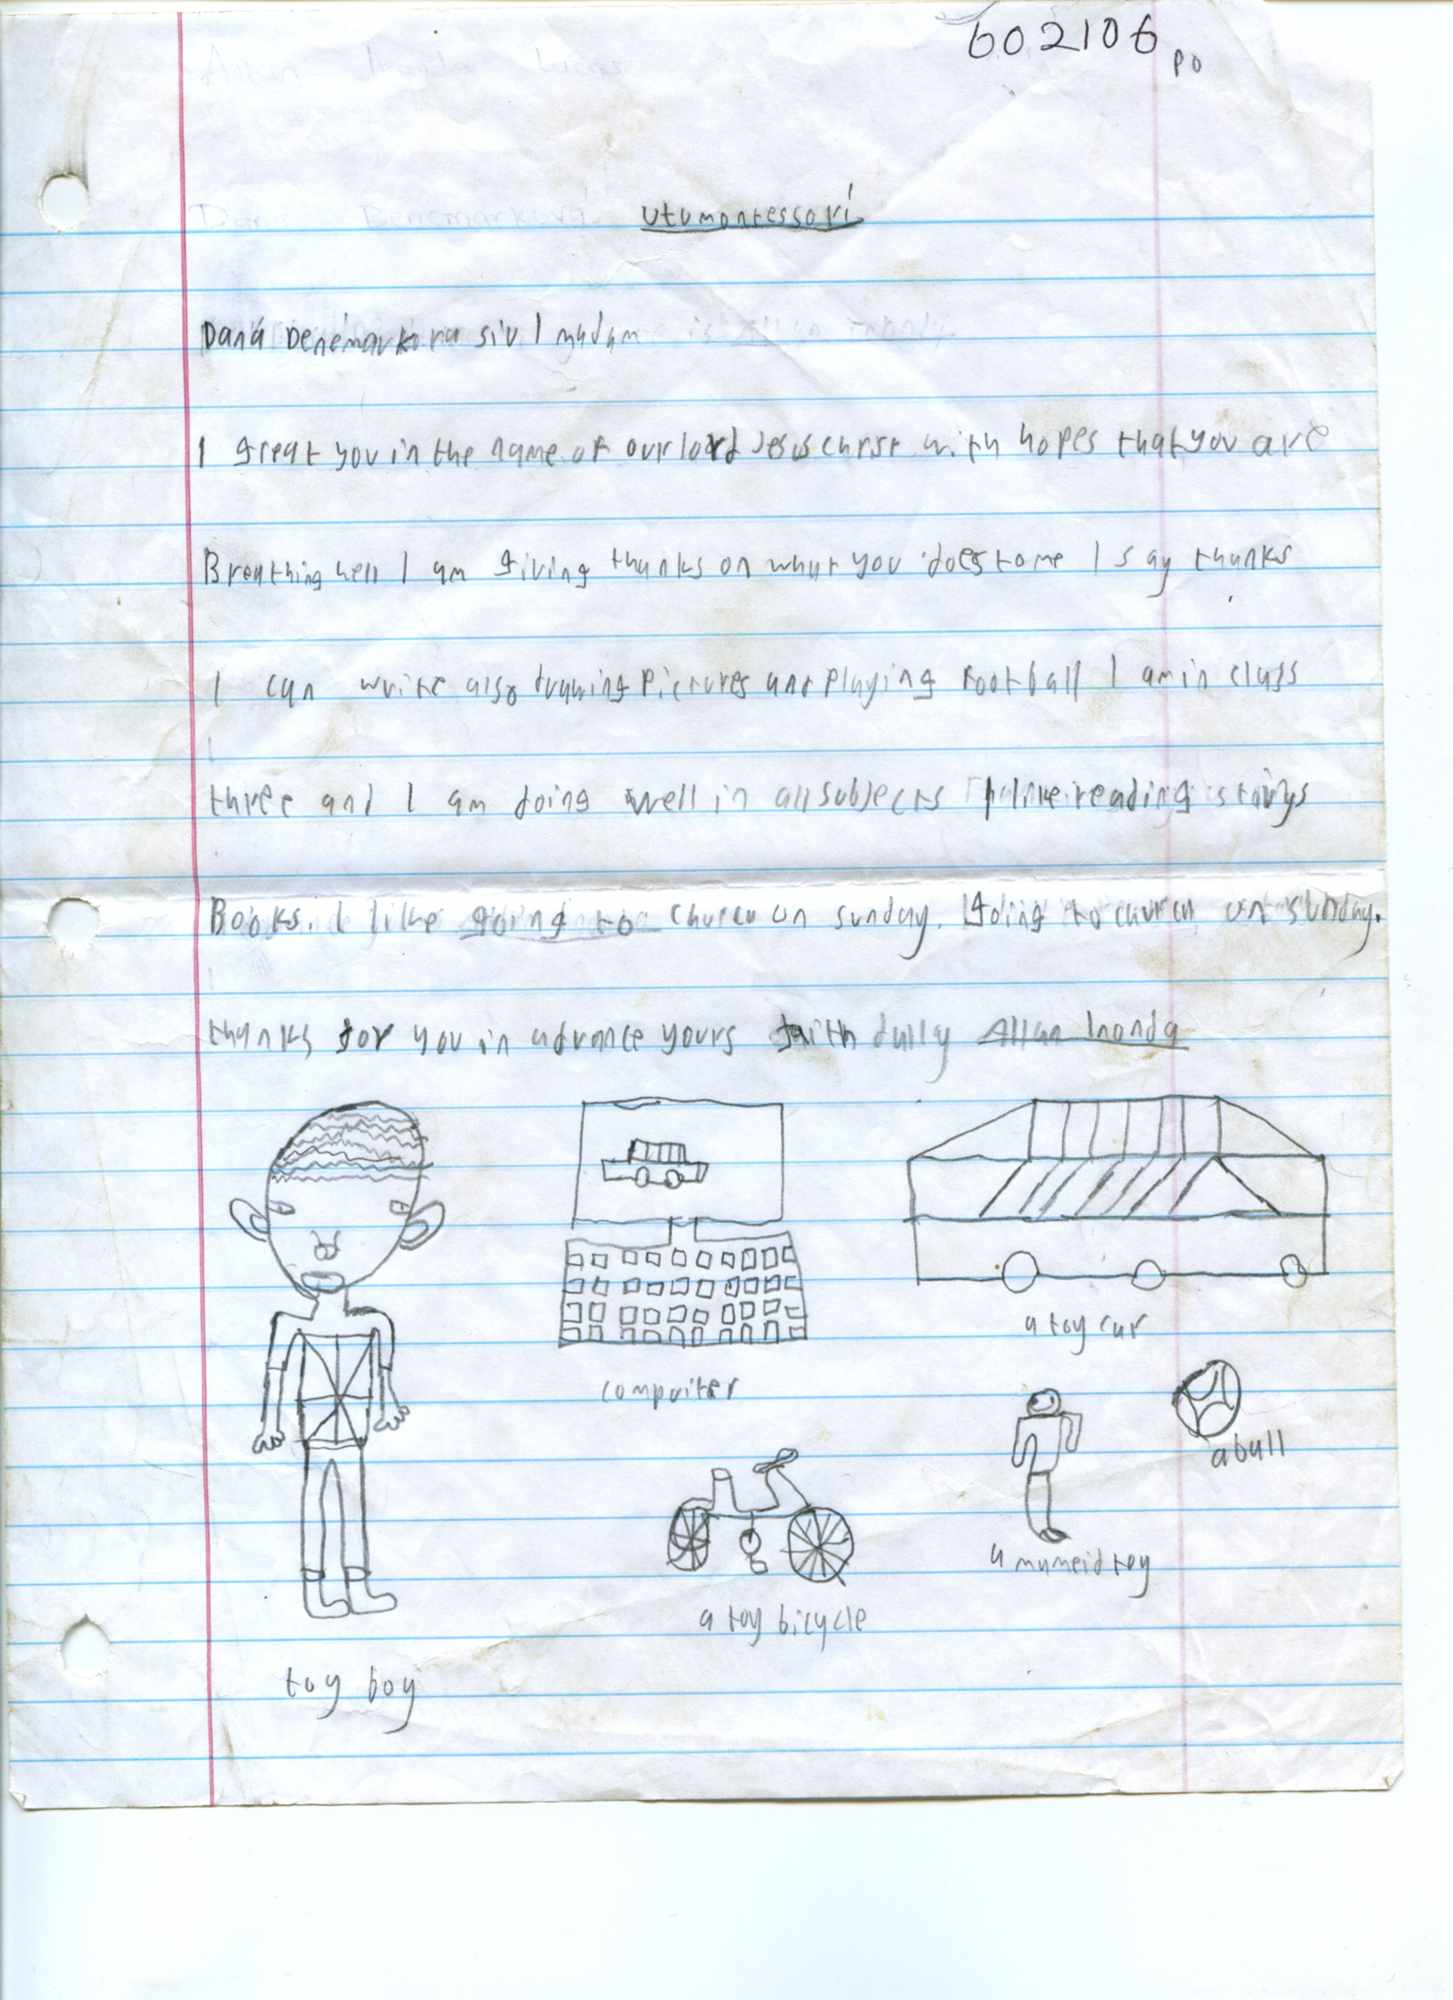 602106
po
utumontessori
Daná Denémarkova sir/madam
I great you in the name of our lord Jesus christ with hopes that you are
Breathing well I am giving thanks on what you does to me I say thanks
I can write also drawing pictures and playing football I am in class
three and I am doing well in all subjects I like reading storys
Books. I like going to church on sunday. going to church on sunday.
thanks for you in advance yours faith dully Allan Inonda
a toy car
compuiter
a ball
a toy bicycle
toy boy